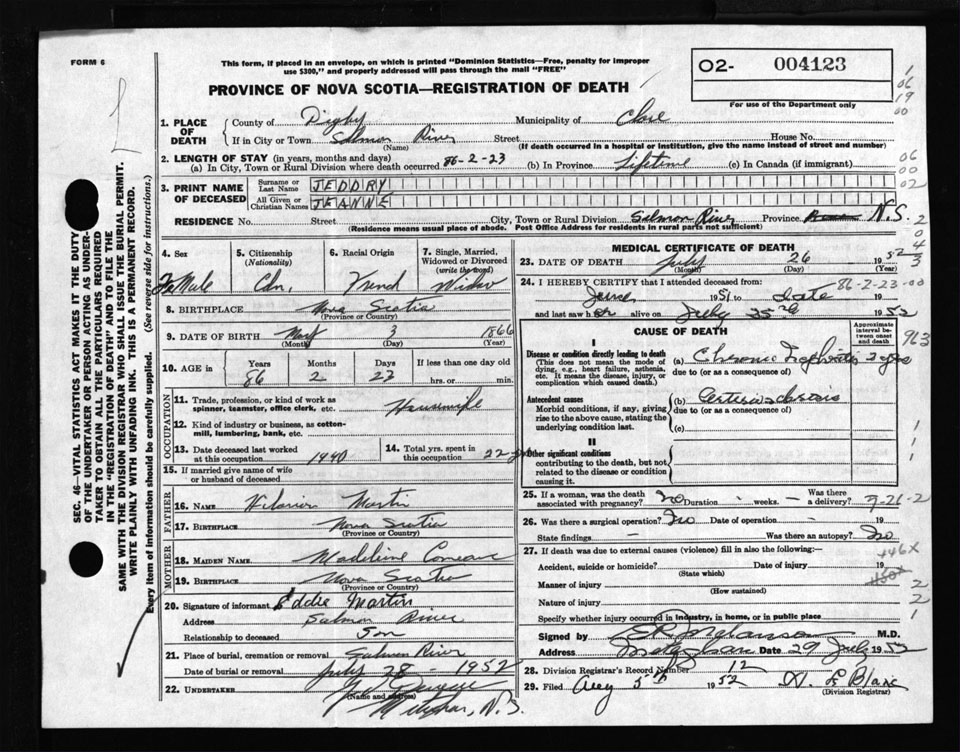 FORM 6
This form, if placed in an envelope, on which is printed "Dominion Statistics—Free, penalty for improper
use $300," and properly addressed will pass through the mail "FREE"
O2- 004123
For use of the Department only
PROVINCE OF NOVA SCOTIA—REGISTRATION OF DEATH
1. PLACE OF DEATH
County of Digby Municipality of Clare
If in City or Town Salmon River Street House No.
(Name) (If death occurred in a hospital or institution, give the name instead of street and number)
2. LENGTH OF STAY (in years, months and days)
(a) In City, Town or Rural Division where death occurred 86-2-23 (b) In Province Lifetime (c) In Canada (if immigrant)
3. PRINT NAME OF DECEASED
Surname or Last Name JEDDRY
All Given or Christian Names JEANNE
RESIDENCE No. Street City, Town or Rural Division Salmon River Province N.S.
(Residence means usual place of abode. Post Office Address for residents in rural parts not sufficient)
4. Sex Female
5. Citizenship (Nationality) Cdn,
6. Racial Origin French
7. Single, Married, Widowed or Divorced (write the word) Widow
8. BIRTHPLACE Nova Scotia
(Province or Country)
9. DATE OF BIRTH May 3 1866
(Month) (Day) (Year)
10. AGE in Years 86 Months 2 Days 23 If less than one day old
hrs. or min.
OCCUPATION
11. Trade, profession, or kind of work as
spinner, teamster, office clerk, etc. Housewife
12. Kind of industry or business, as cotton-
mill, lumbering, bank, etc.
13. Date deceased last worked
at this occupation 1940
14. Total yrs. spent in
this occupation 22
15. If married give name of wife
or husband of deceased
FATHER
16. NAME Martin
17. BIRTHPLACE Nova Scotia
(Province or Country)
MOTHER
18. MAIDEN NAME Madeline Comeau
19. BIRTHPLACE Nova Scotia
(Province or Country)
20. Signature of informant Eddie Martin
Address Salmon River
Relationship to deceased Son
21. Place of burial, cremation or removal Salmon River
Date of burial or removal July 28 1952
22. UNDERTAKER
(Name and address)
Meteghan, N.S.
MEDICAL CERTIFICATE OF DEATH
23. DATE OF DEATH July 26 1952
(Month) (Day) (Year)
24. I HEREBY CERTIFY that I attended deceased from: 86-2-23-00
June 1951 to date 19
and last saw her alive on July 25th 1952
CAUSE OF DEATH
Approximate interval between onset and death
I
Disease or condition directly leading to death
This does not mean the mode of
dying, e.g., heart failure, asthenia,
etc. It means the disease, injury, or
complication which caused death.
(a) Chronic Nephritis 2 yrs
due to (or as a consequence of)
Antecedent causes
Morbid conditions, if any, giving
rise to the above cause, stating the
underlying condition last.
(b) Arteriosclerosis
due to (or as a consequence of)
(c)
II
Other significant conditions
contributing to the death, but not
related to the disease or condition
causing it.
25. If a woman, was the death
associated with pregnancy? No Duration - weeks. — Was there
a delivery?
26. Was there a surgical operation? No Date of operation 19
State findings — Was there an autopsy? No
27. If death was due to external causes (violence) fill in also the following:—
Accident, suicide or homicide? Date of injury 19
(State which)
Manner of injury
(How sustained)
Nature of injury
Specify whether injury occurred in industry, in home, or in public place
Signed by M.D.
Address Meteghan Date 29 July 1952
28. Division Registrar's Record Number 12
29. Filed Aug 5th 1952 LeBlanc
(Division Registrar)
SEC. 46—VITAL STATISTICS ACT MAKES IT THE DUTY
OF THE UNDERTAKER OR PERSON ACTING AS UNDER-
TAKER TO OBTAIN ALL THE PARTICULARS REQUIRED
IN THE "REGISTRATION OF DEATH" AND TO FILE THE
SAME WITH THE DIVISION REGISTRAR WHO SHALL ISSUE THE BURIAL PERMIT.
WRITE PLAINLY WITH UNFADING INK. THIS IS A PERMANENT RECORD.
Every item of information should be carefully supplied. (See reverse side for instructions.)